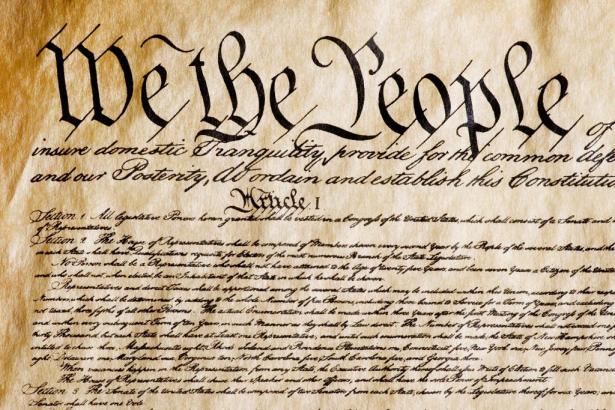 We the People of
insure domestic Tranquility, provide for the common defe
and our Posterity, do ordain and establish this Constituti
Article. I
Section. 1. All legislative Powers herein granted shall be vested in a Congress of the United States, which shall consist of a Senate and
of Representatives.
Section. 2. The House of Representatives shall be composed of Members chosen every second Year by the People of the several States, and the
in each State shall have Qualifications requisite for Electors of the most numerous Branch of the State Legislature.
No Person shall be a Representative who shall not have attained to the Age of twenty five Years, and been seven Years a Citizen of the
and who shall not, when elected, be an Inhabitant of that State in which he shall be chosen.
Representatives and direct Taxes shall be apportioned among the several States which may be included within this Union, according to their
Numbers, which shall be determined by adding to the whole Number of free Persons, including those bound to Service for a Term of Years, and
not taxed, three fifths of all other Persons. The actual Enumeration shall be made within three Years after the first Meeting of the Congress of the
and within every subsequent Term of ten Years, in such Manner as they shall by Law direct. The Number of Representatives shall not exceed
thirty Thousand, but each State shall have at Least one Representative; and until such enumeration shall be made, the State of New Hampshire
entitled to chuse three, Massachusetts eight, Rhode Island and Providence Plantations one, Connecticut five, New York six, New Jersey four, Penns
eight, Delaware one, Maryland six, Virginia ten, North Carolina five, South Carolina five, and Georgia three.
When vacancies happen in the Representation from any State, the Executive Authority thereof shall issue Writs of Election to fill such Vacanc
The House of Representatives shall chuse their Speaker and other Officers; and shall have the sole Power of Impeachment.
Section. 3. The Senate of the United States shall be composed of two Senators from each State, chosen by the Legislature thereof, for six Years;
Senator shall have one Vote.